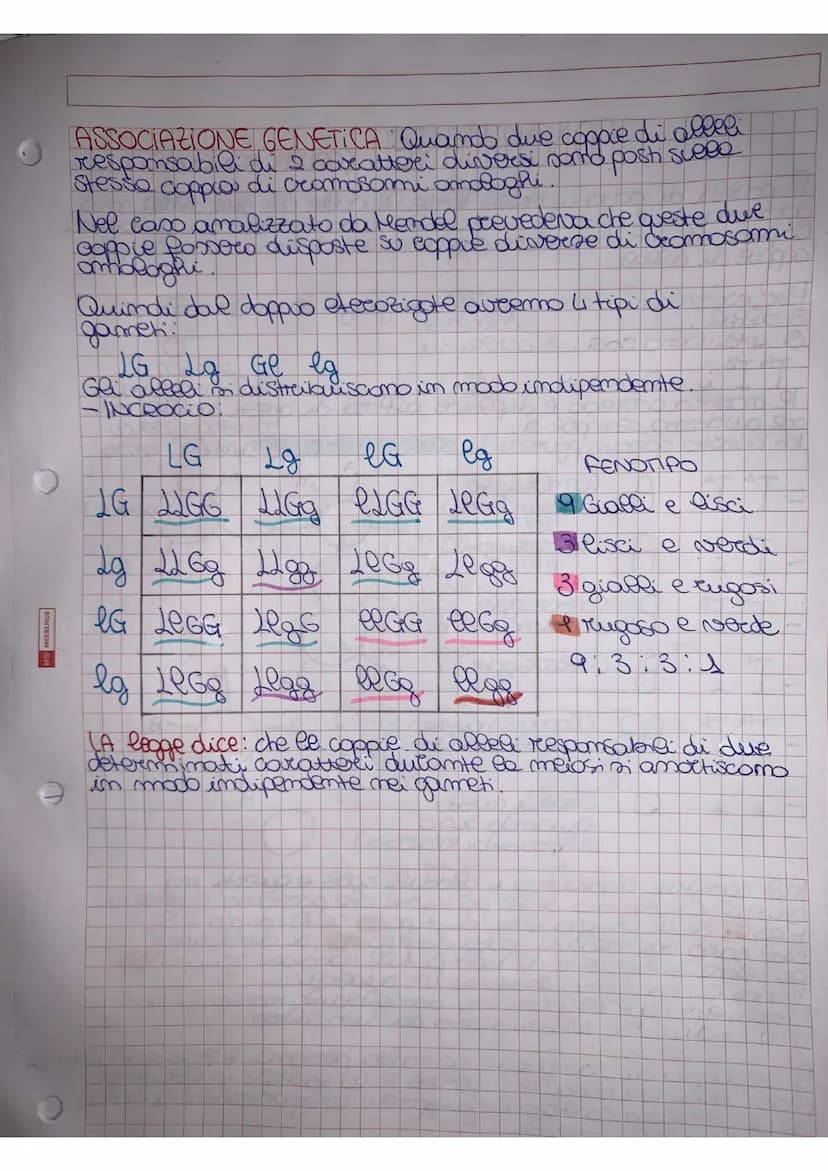 ASSOCIAZIONE GENETICA: Quando due coppie di alleli
responsabili di 2 caratteri diversi sono posti sulla
stessa coppia di cromosomi omologhi.
Nel caso analizzato da Mendel prevedeva che queste due
coppie fossero disposte su coppie diverse di cromosomi
omologhi.
Quindi dal doppio eterozigote avremo 4 tipi di
gameti:
LG Lg Gl lg
Gli alleli si distribuiscono in modo indipendente.
- INCROCIO:
LG Lg lG lg FENOTIPO
LG LLGG LLGg lLGG LlGg 9 Gialli e lisci
Lg LLGg LLgg LlGg Llgg 3 lisci e verdi
lG LlGG LlgG llGG llGg 3 gialli e rugosi
lg LlGg Llgg llGg llgg 1 rugoso e verde
9:3:3:1
LA legge dice: che le coppie di alleli responsabili di due
determinati caratteri durante la meiosi si smistiscono
in modo indipendente nei gameti.